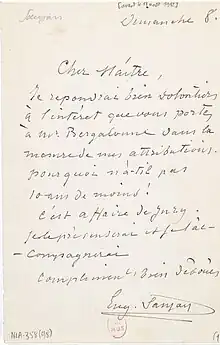 Dimanche 8.
Cher Maître,
Je repondrai bien volontiers
à l'intéret que vous portez
à Mr. Bergalonne dans la
mesure de mes attributions.
pourquoi n'a-t-il pas
10 ans de moins!
C'est affaire de Jury
Je le préviendrai et je l'ac-
-compagnerai
Complement bien dévoué
Eug.